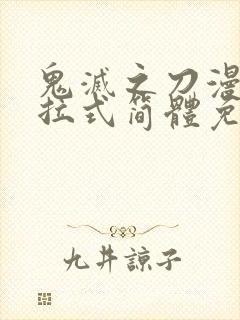 鬼滅之刀漫
拉式简體免
九井諒子